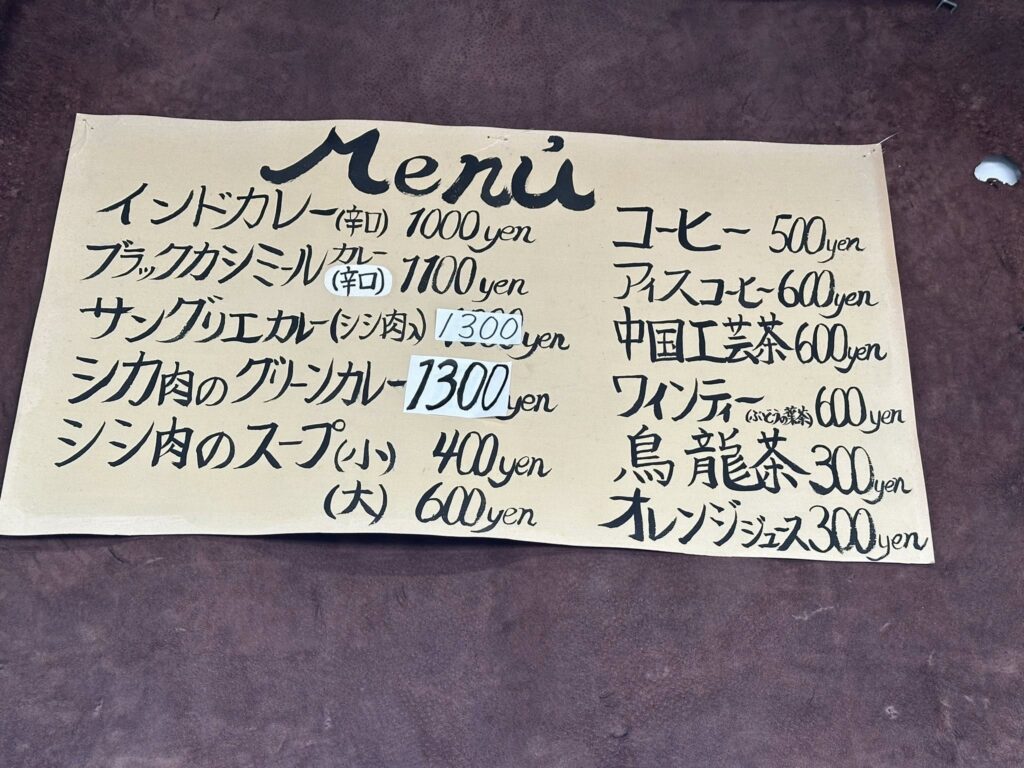 Menú
インドカレー(辛口) 1000yen
ブラックカシミールカレー(辛口) 1100yen
サングリエカレー(シシ肉入) 1300yen
シカ肉のグリーンカレー 1300yen
シシ肉のスープ(小) 400yen
(大) 600yen
コーヒー 500yen
アイスコーヒー 600yen
中国工芸茶 600yen
ワインティー(ぶどうの葉茶) 600yen
烏龍茶 300yen
オレンジジュース 300yen